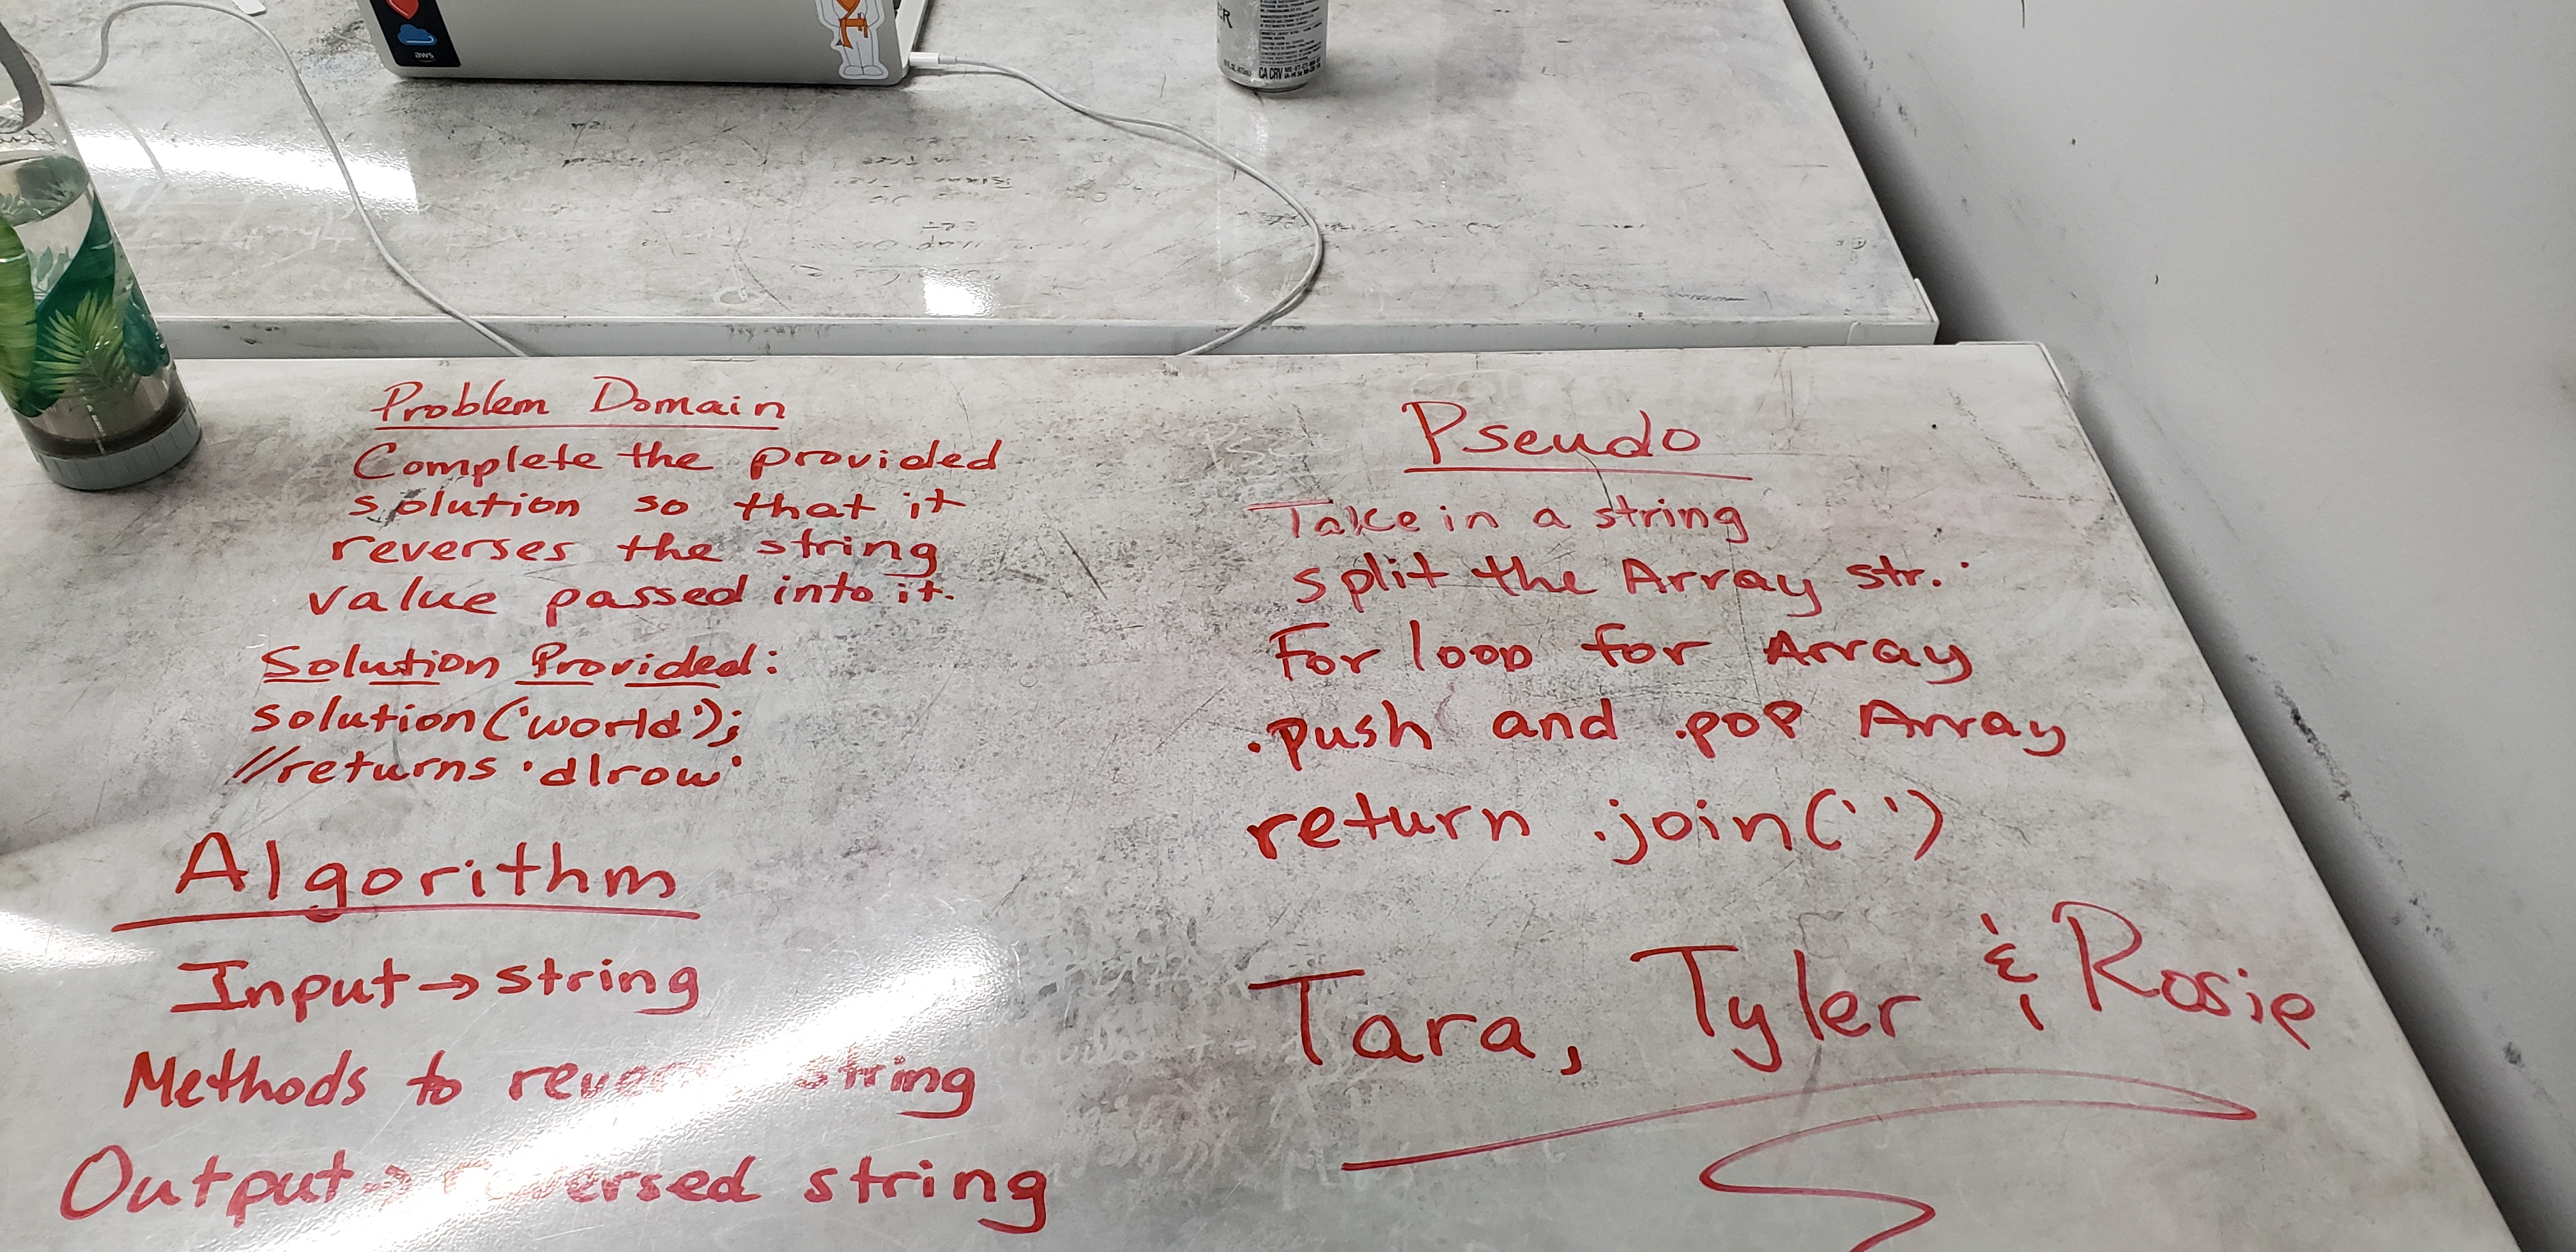 aws
CA CRV
Problem Domain
Complete the provided
solution so that it
reverses the string
value passed into it.
Solution Provided:
solution('world');
//returns 'dlrow'
Algorithm
Input → string
Methods to reverse string
Output → reversed string
Pseudo
Take in a string
split the Array str.
For loop for Array
.push and .pop Array
return .join('')
Tara, Tyler & Rosie